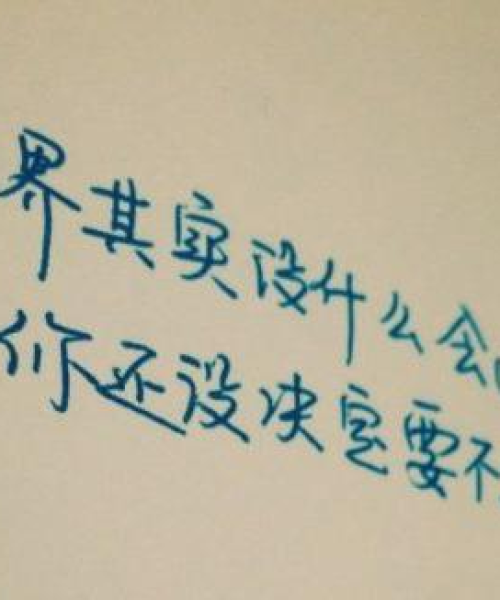 界其实没什么会
你还没决定要不